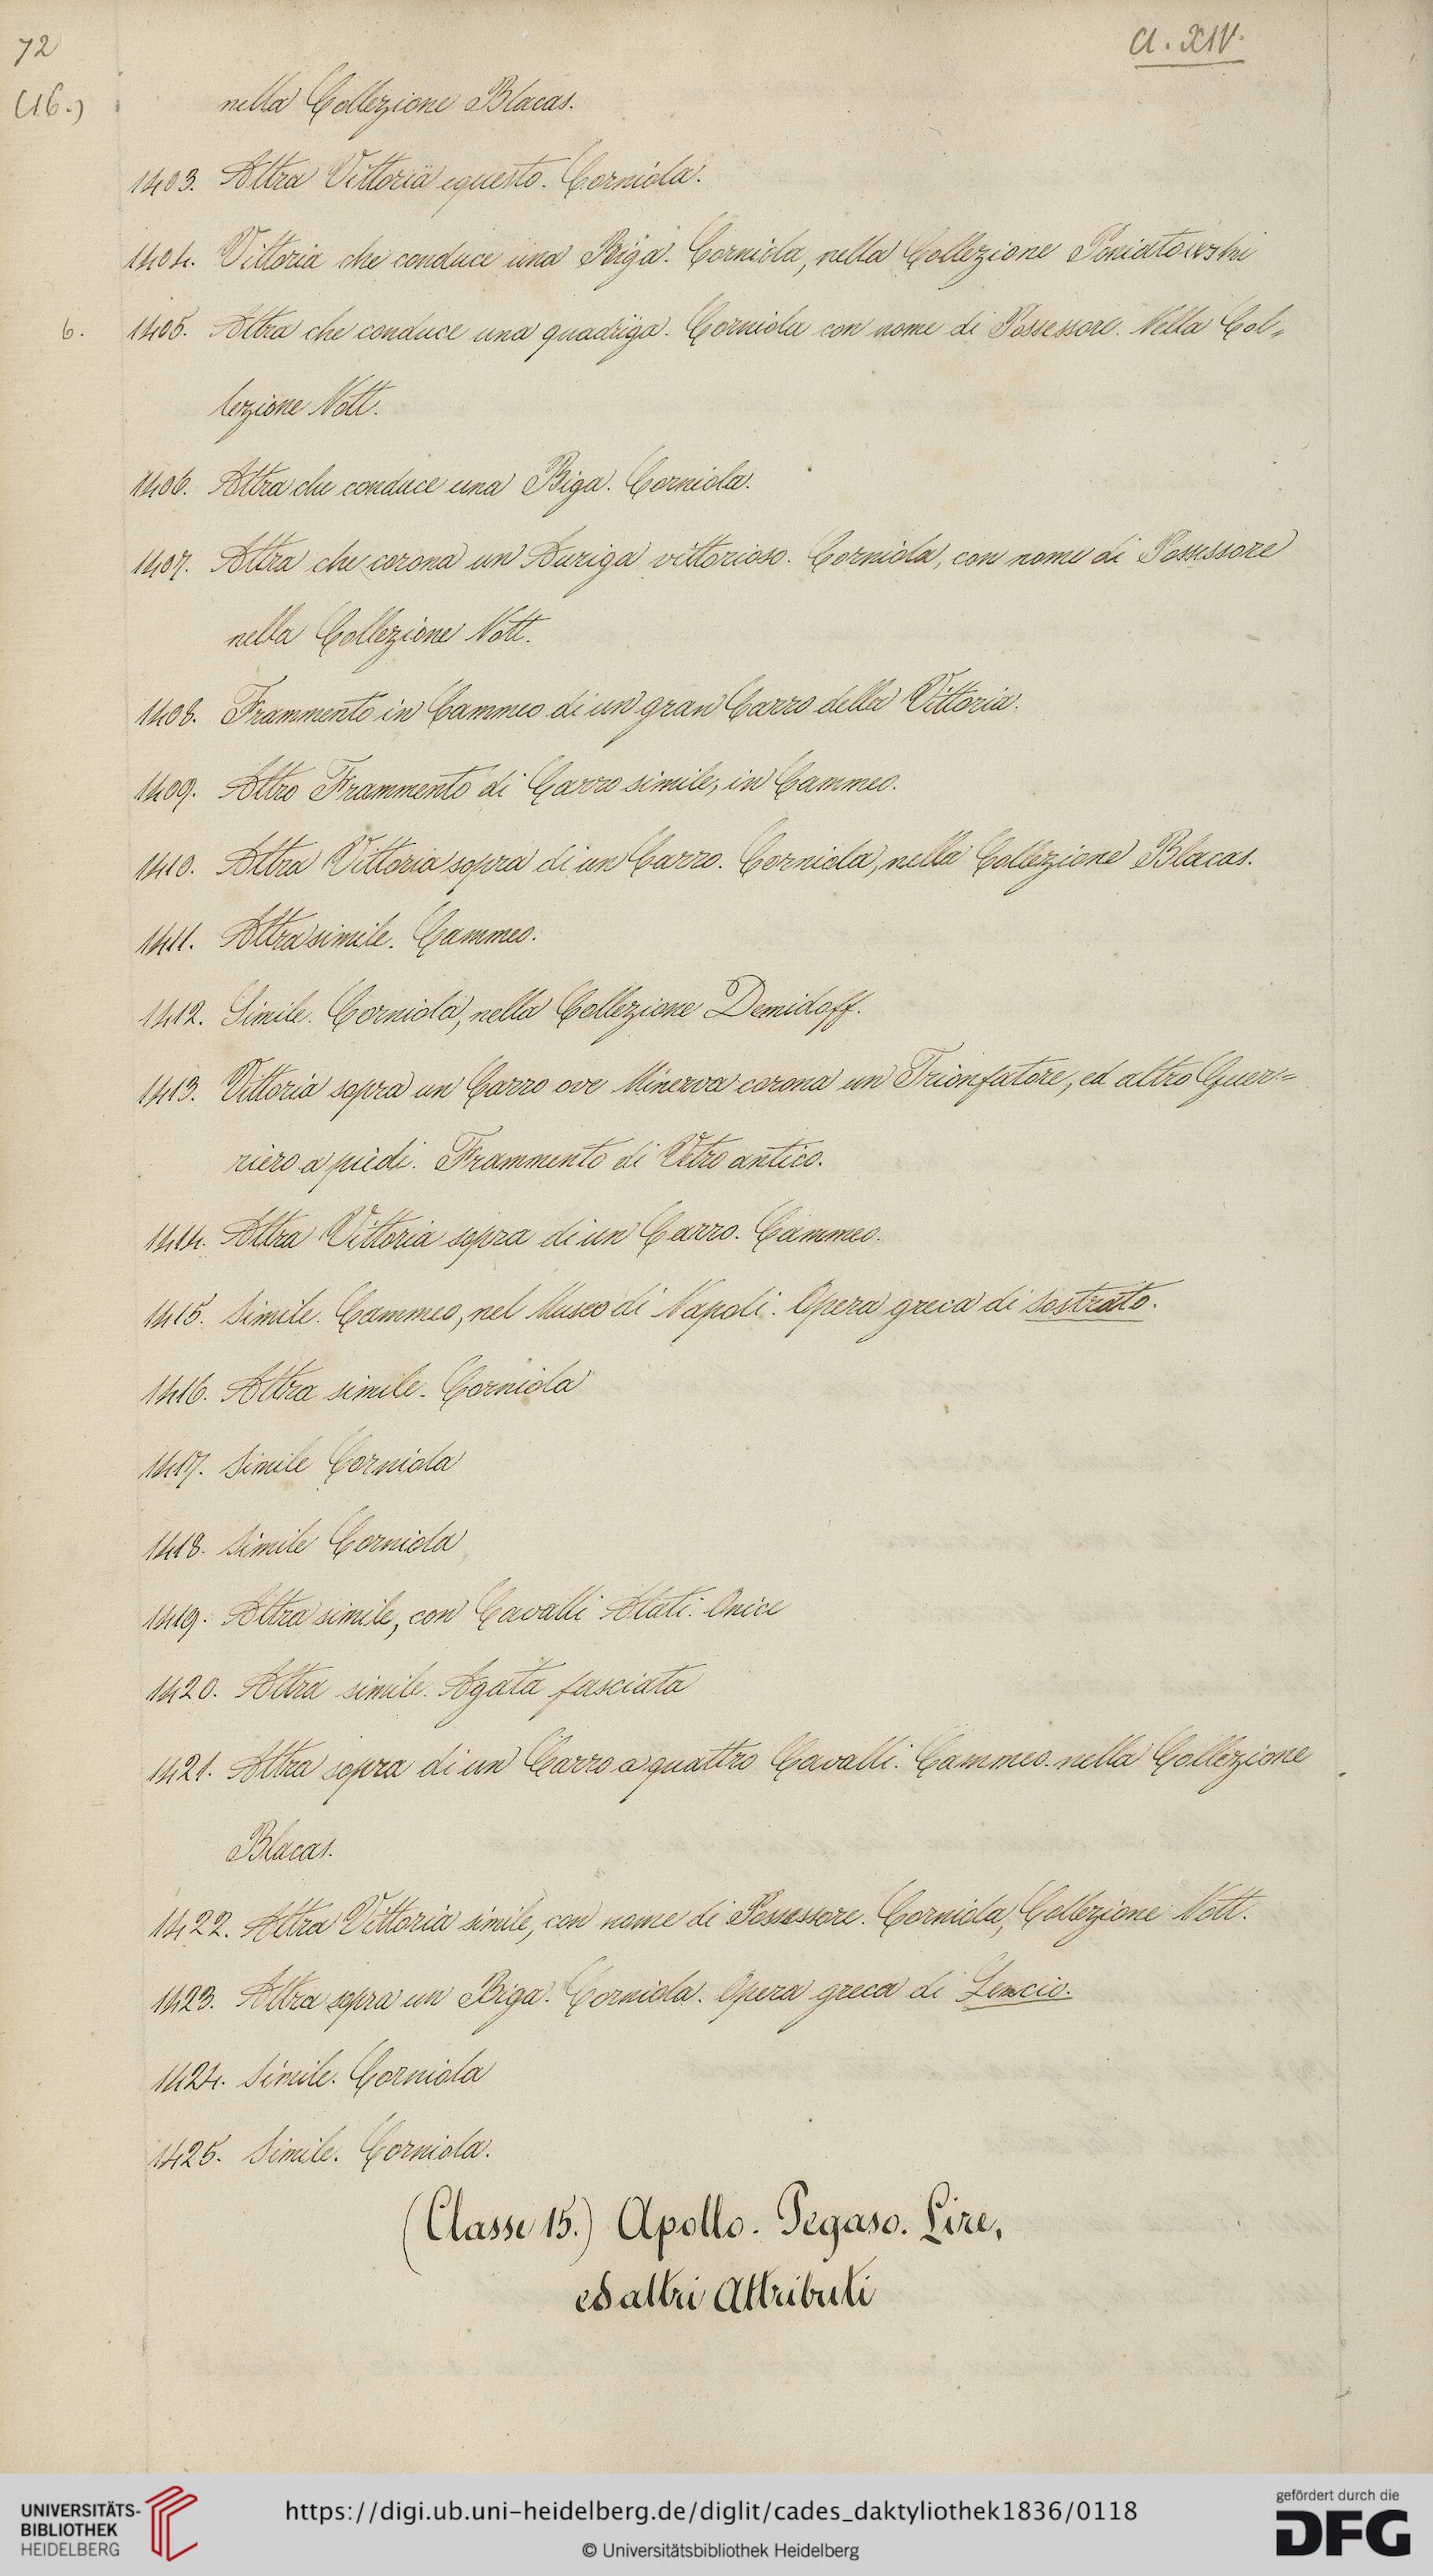 72
Cl. XIV.
(16.)
nella Collezione Blacas.
1403. Altra Vittoria equestr. Corniola.
1404. Vittoria che conduce una Biga. Corniola, nella Collezione Poniatowski
6.
1405. Altra che conduce una quadriga. Corniola con nome di Possessore. Nella Col=
lezione Nott.
1406. Altra che conduce una Biga. Corniola.
1407. Altra che corona un Auriga vittorioso. Corniola, con nome di Possessore
nella Collezione Nott.
1408. Frammento in Cammeo di un gran Carro della Vittoria.
1409. Altro Frammento di Carro simile, in Cammeo.
1410. Altra Vittoria sopra di un Carro. Corniola, nella Collezione Blacas.
1411. Altra simile. Cammeo.
1412. Simile. Corniola, nella Collezione Demidoff.
1413. Vittoria sopra un Carro ove Minerva corona un Trionfatore, ed altro Guer=
riero a piedi. Frammento di Vetro antico.
1414. Altra Vittoria sopra di un Carro. Cammeo.
1415. Simile. Cammeo, nel Museo di Napoli. Opera greca di Sostrato.
1416. Altra simile. Corniola
1417. Simile Corniola
1418. Simile Corniola
1419. Altra simile, con Cavalli Alati. Onice
1420. Altra simile. Agata fasciata
1421. Altra sopra di un Carro a quattro Cavalli. Cammeo. nella Collezione
Blacas.
1422. Altra Vittoria simile, con nome di Possessore. Corniola, Collezione Nott.
1423. Altra sopra un Biga. Corniola. Opera greca di
1424. Simile. Corniola
1425. Simile. Corniola.
(Classe 15.) Apollo. Pegaso. Lire,
ed altri Attributi
UNIVERSITÄTS-
BIBLIOTHEK
HEIDELBERG
https://digi.ub.uni-heidelberg.de/diglit/cades_daktyliothek1836/0118
© Universitätsbibliothek Heidelberg
gefördert durch die
DFG